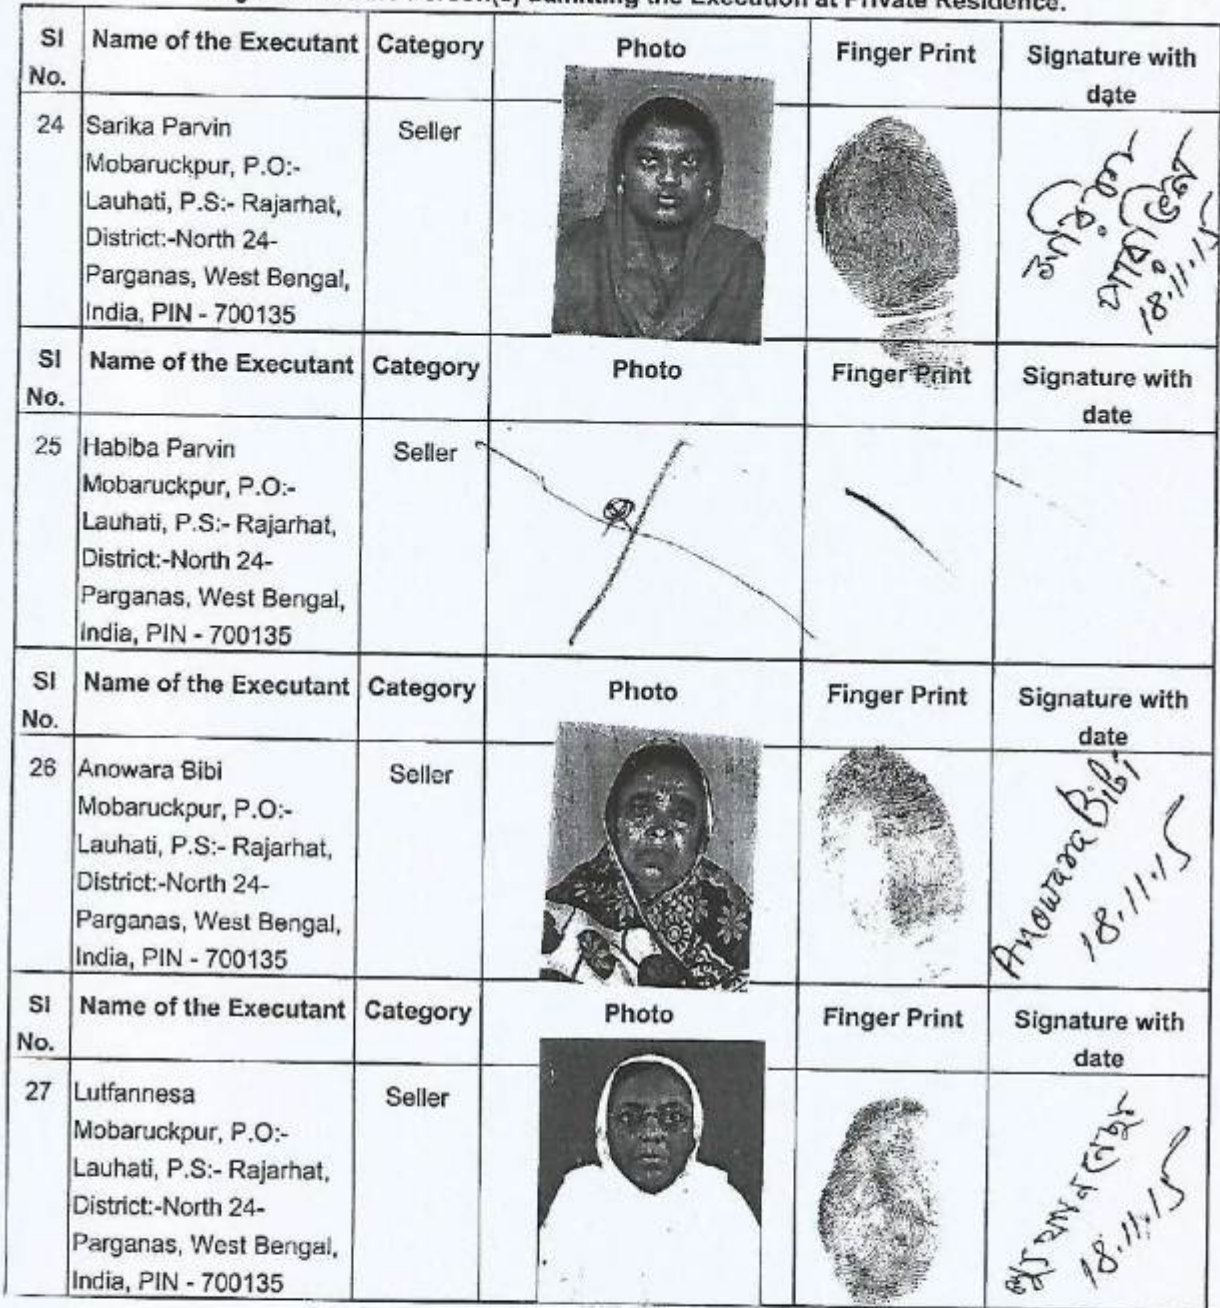 Person(s) admitting the Execution at Private Residence.
SI No. Name of the Executant Category Photo Finger Print Signature with date
24 Sarika Parvin Seller
Mobaruckpur, P.O:-
Lauhati, P.S:- Rajarhat,
District:-North 24-
Parganas, West Bengal,
India, PIN - 700135
18.11.15
SI No. Name of the Executant Category Photo Finger Print Signature with date
25 Habiba Parvin Seller
Mobaruckpur, P.O:-
Lauhati, P.S:- Rajarhat,
District:-North 24-
Parganas, West Bengal,
India, PIN - 700135
SI No. Name of the Executant Category Photo Finger Print Signature with date
26 Anowara Bibi Seller
Mobaruckpur, P.O:-
Lauhati, P.S:- Rajarhat,
District:-North 24-
Parganas, West Bengal,
India, PIN - 700135
Anowara Bibi
18.11.15
SI No. Name of the Executant Category Photo Finger Print Signature with date
27 Lutfannesa Seller
Mobaruckpur, P.O:-
Lauhati, P.S:- Rajarhat,
District:-North 24-
Parganas, West Bengal,
India, PIN - 700135
18.11.15